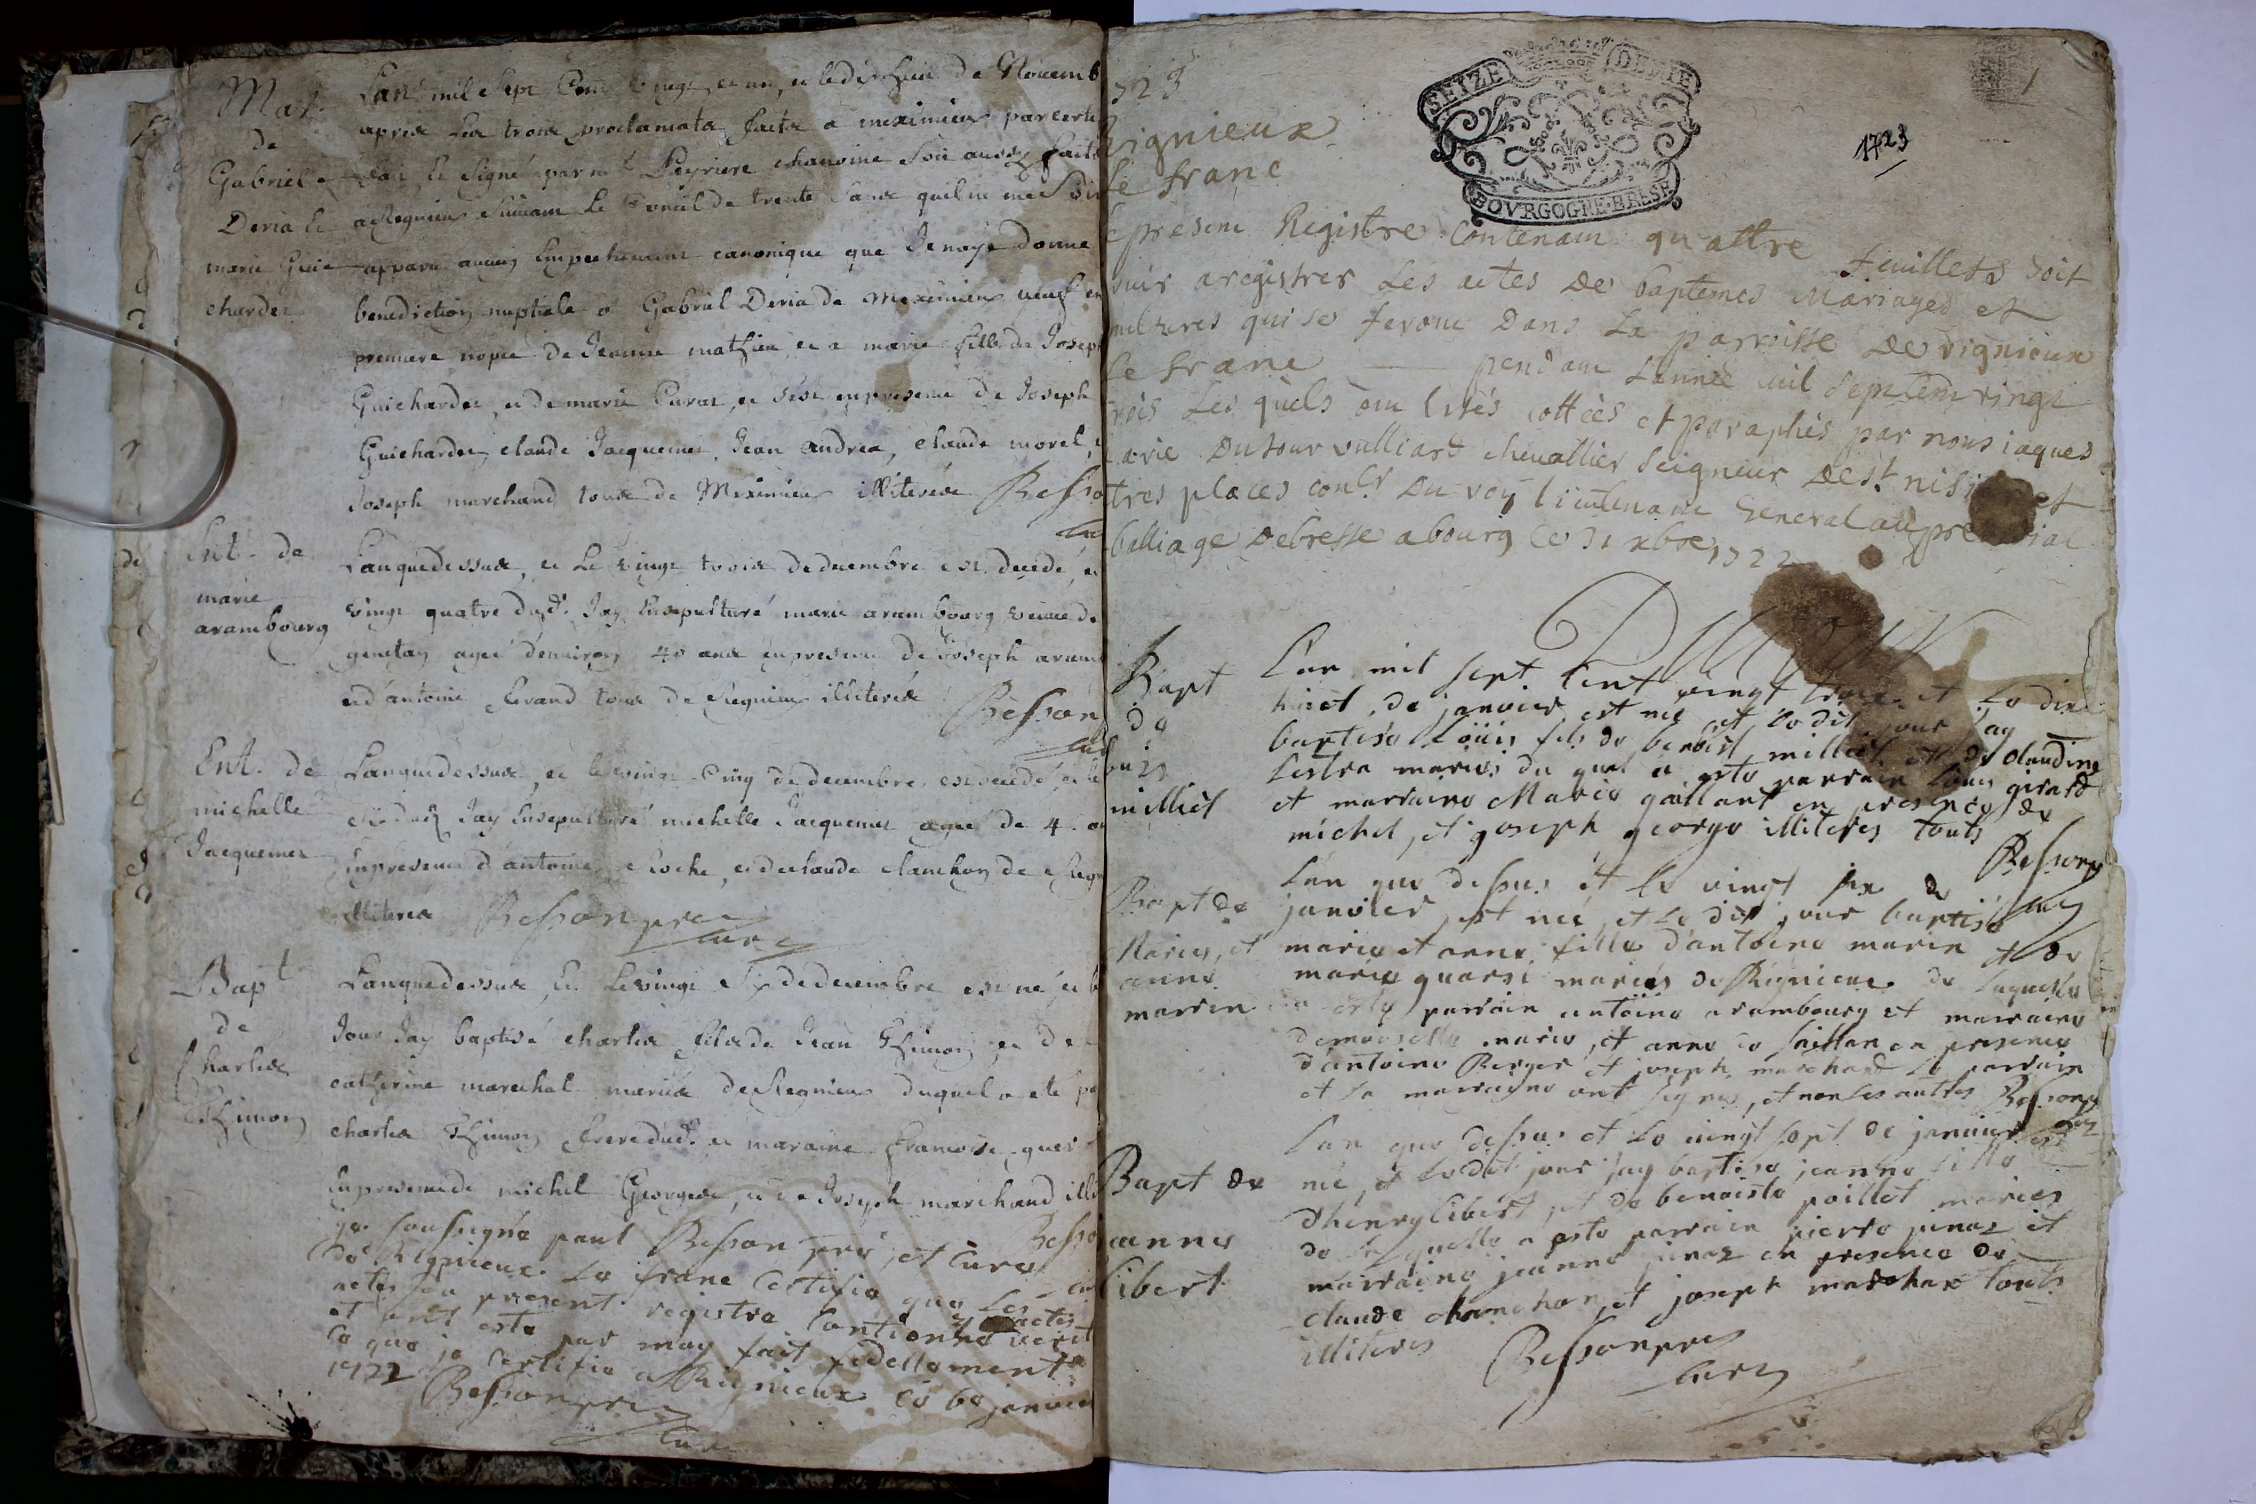 Mar.
de
Gabriel
Deria et
marie Gui
chardet
Lan mil Sept Cent vingt et un, et le dix huit de Novemb
apres les trois proclamats faits a meximieux par certi
le Signé par Mr Peyriere chanoine Soit aussy faits
a Regnieux Suivant Le Concil de trente Sans quil me Soit
apparu aucun Empechement canonique que Jenaye donne
benediction nuptiale a Gabriel Deria de Meximieux veuf en
premiere nopce de Jeanne mathieu et a marie fille de Joseph
Guichardet et de marie Curat, et cest en presence de Joseph
Guichardet, claude Jacquemet, Jean andrea, claude morel,
Joseph marchand tous de Meximieux illiterés Besso
Ent. de
marie
arambourg
Lanquedessus, et Le vingt trois de decembre est decedé, et
vingt quatre dud. Jay Ensepulturé marie arambourg veuve de
genetay agée denviron 40 ans en presence de Joseph aram
et d'antoine Evrand tous de Regnieux illiterés
Besson
Ent. de
michelle
Jacquemet
Lanquedessus, et le vingt Cinq de decembre est decedé, et le
Jay Ensepulturé michelle Jacquemet agée de 4
En presence d'antoine Cloche, et de claude clanchon de Reg
illiterés Besson pre
curé
Bapt
de
Charles
Thimon
Lanquedessus, Et Le vingt Six de decembre est né, et le
Jour Jay baptisé charles fils de Jean Thimon et de
catherine marechal mariés de Regnieux duquel a eté pa
charles Thimon frere dud. et maraine francoise quer
En presence de michel George, et de Joseph marchand illi
Besso
je soussigné paul Besson pre et Curé
de Rignieux Le franc Certifie que Les actes
au present registre Contienne verit
et ont esté par moy fait fidellement
Ce que je Certifie a Rignieux ce 6e janvier
1722 Besson pre
Curé
723
Rignieux
Le franc
SEIZE DENIE
BOVRGOGNE·BRESSE
1
1723
Le present Registre Contenant quattre feuillets Soit
pour aregistrer Les actes De baptemes Mariages et
pultures qui se feront Dans La parroisse De rignieux
le franc pendant Lannée mil Septcent vingt
rois Les quels ont Ettés cottés et Paraphés par nous iaques
arie Dutour vulliard chevallier Seigneur De St nisi et
tres places conlr Du roy lieutenant General au presidial
balliage De bresse a bourg ce 31 xbre 1722
Bapt
de
ouis
milliet
L'an mil sept Cent vingt trois et Le dix
huict de janvier est né et Le dit jour Jay
baptisé Louis fils de benoist milliet et de claudine
Lestra mariés du quel a esté parrain Louis girard
et marraine Marie gaillant en presence de
michel, et joseph george illiteres touts
Besson
curé
Bapt de
Marie, et
anne
marrin
L'an que dessus et le vingt six de
janvier est neé, et Le dit jour baptisé
marie et anne fille d'antoine marin et de
marie quarsi mariés de Rignieux de Laquelle
a esté parrain antoine arambourg et marraine
demoiselle marie, et anne de saillan en presence
d'antoine Berger et joseph marchand Le parrain
et La marraine ont signes, et non les autres Besson
curé
Bapt de
eanne
Cibert
L'an que dessus et Le vingt sept de janvier est
né, et Le dit jour Jay baptisé jeanne fille
d'henry Cibert, et de benoiste poillet mariés
de Laquelle a esté parrain pierre pinaz et
marraine jeanne pinaz en presence de
claude chanchon, et joseph marchan touts
illiteres Besson pre
curé